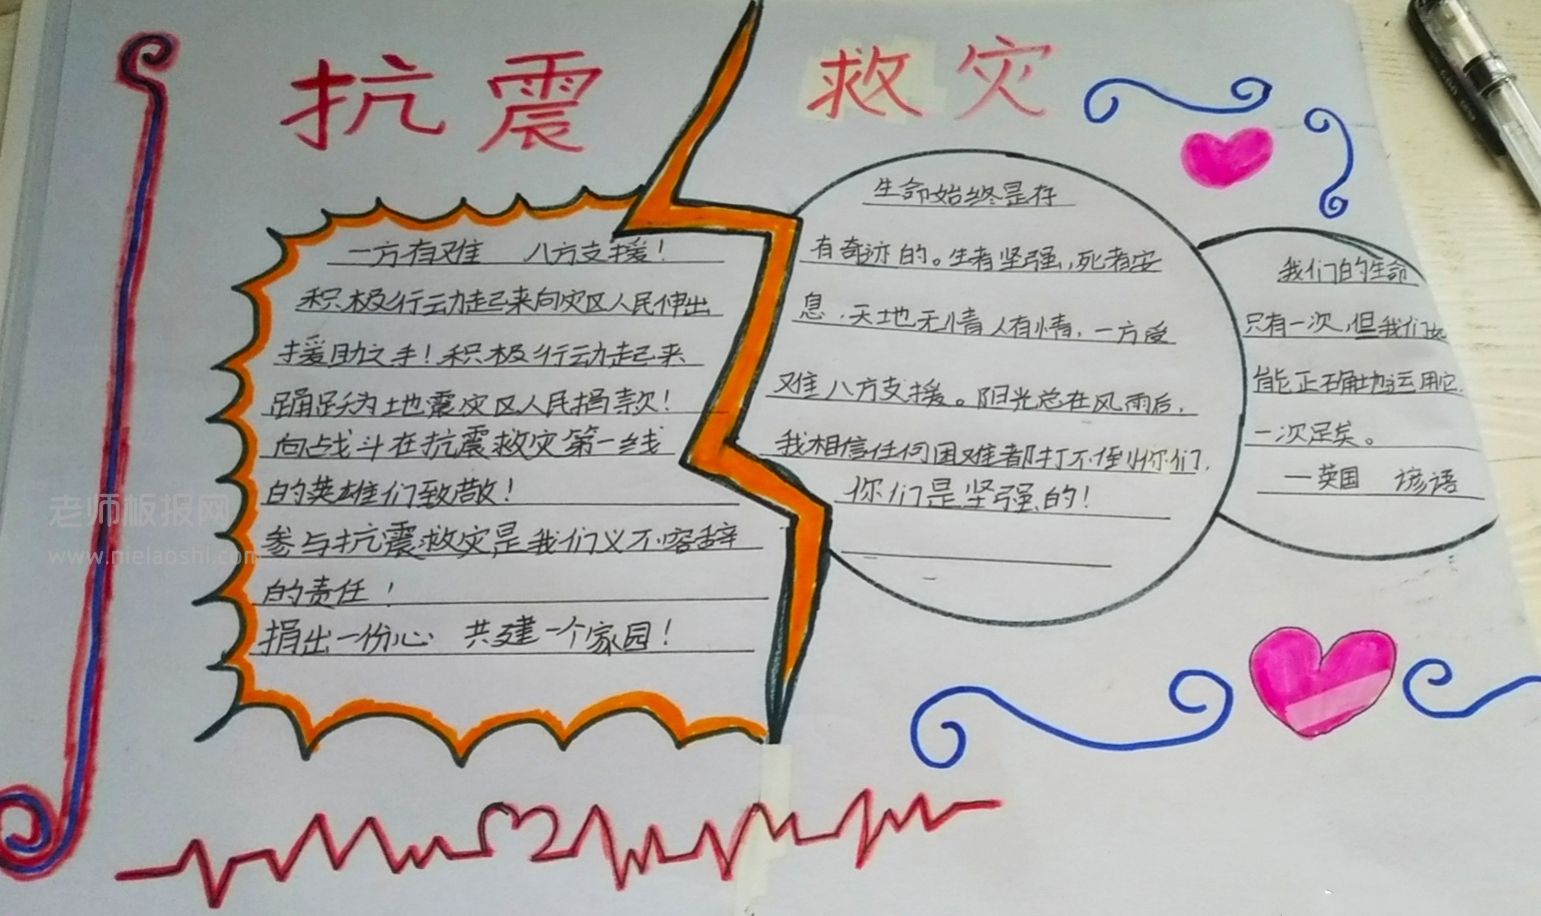 抗震 救灾
一方有难 八方支援！
积极行动起来向灾区人民伸出
援助之手！积极行动起来
踊跃为地震灾区人民捐款！
向战斗在抗震救灾第一线
的英雄们致敬！
参与抗震救灾是我们义不容辞
的责任！
捐出一份心 共建一个家园！
生命始终是存
有奇迹的。生者坚强,死者安
息.天地无情人有情,一方受
难八方支援。阳光总在风雨后,
我相信任何困难都打不倒你们,
你们是坚强的!
我们的生命
只有一次,但我们如
能正确地运用它,
一次足矣。
—英国 谚语
老师板报网
www.nielaoshi.com